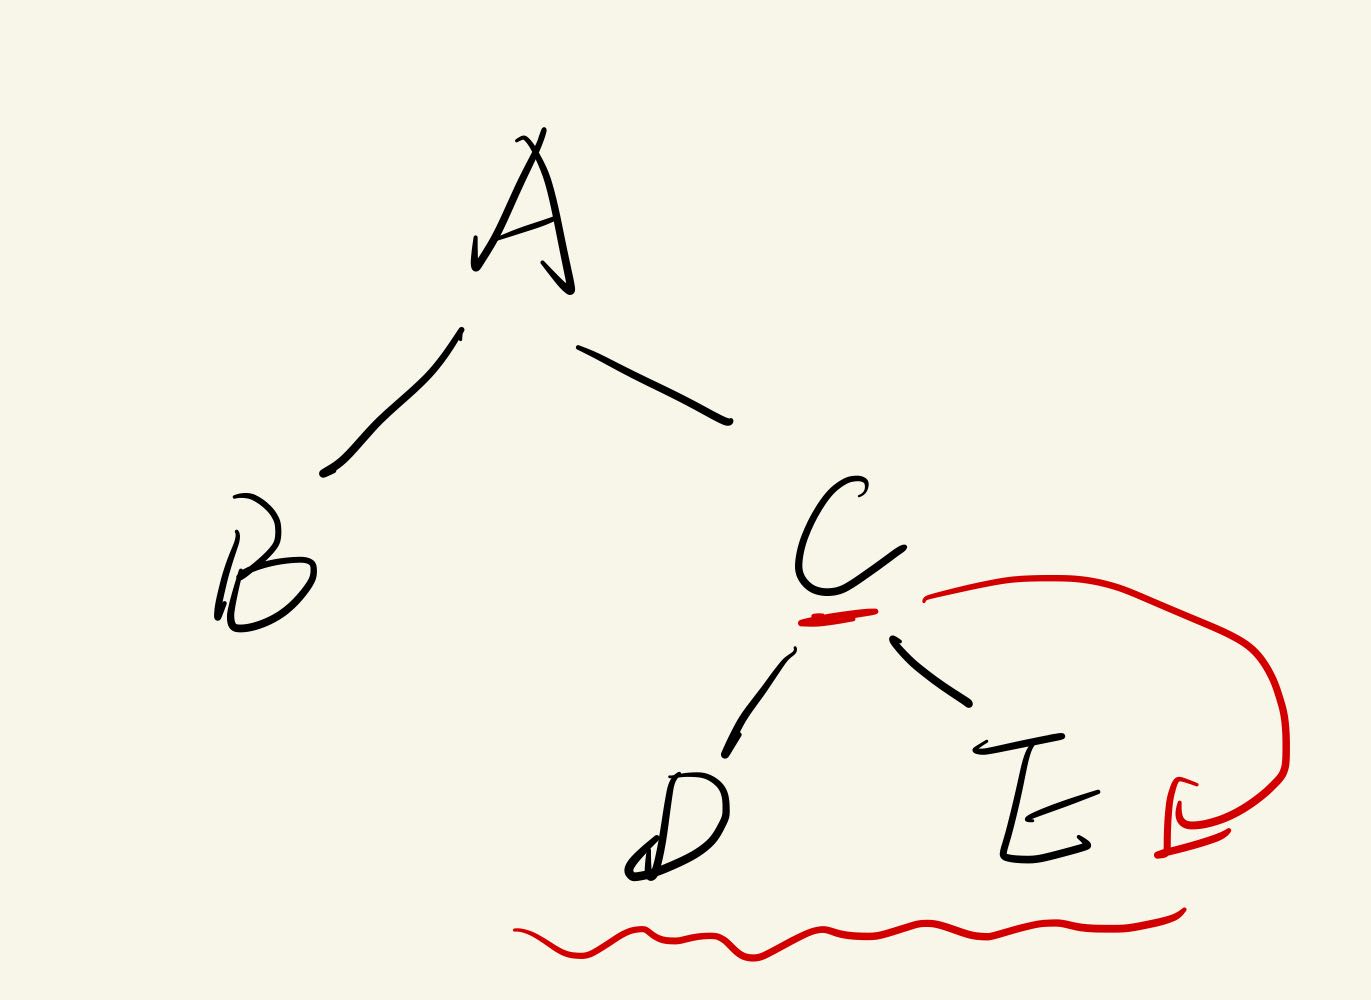 A
B
C
D E